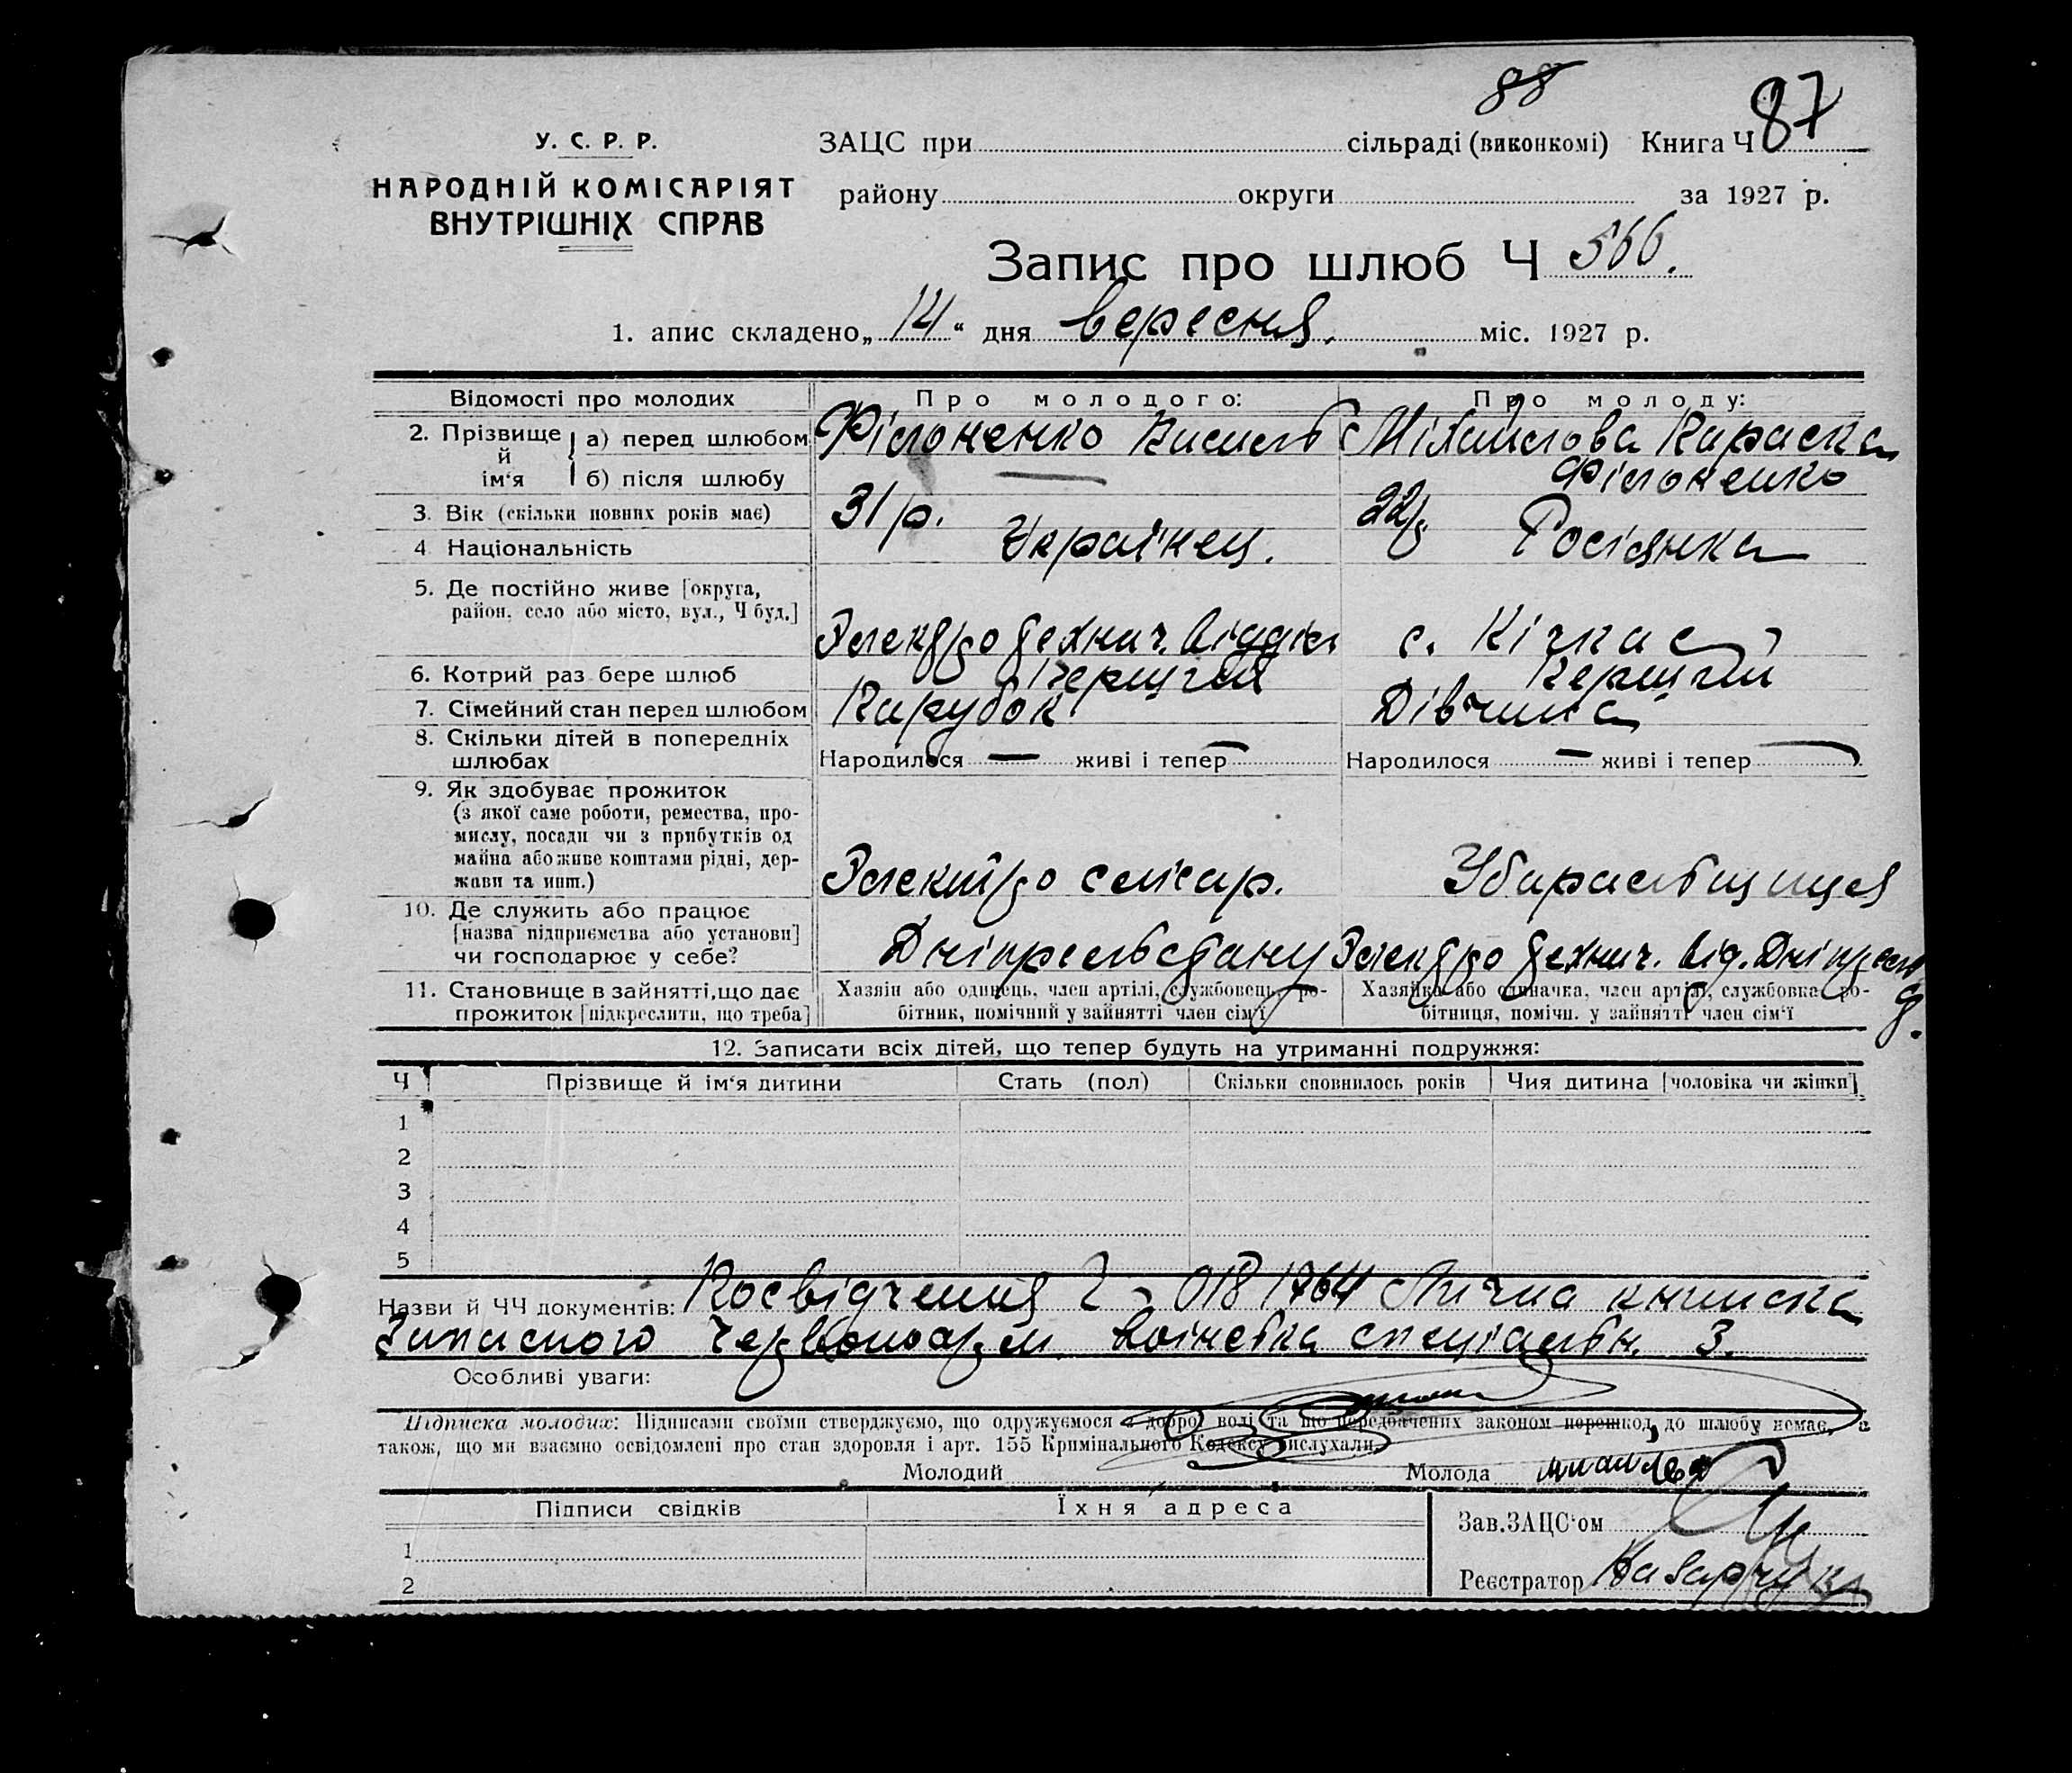 88
У. С. Р. Р.
НАРОДНІЙ КОМІСАРІЯТ
ВНУТРІШНІХ СПРАВ
ЗАЦС при сільраді (виконкомі) Книга Ч 87
району округи за 1927 р.
Запис про шлюб Ч 566.
1. апис складено „14“ дня вересня. міс. 1927 р.
Відомості про молодих Про молодого: Про молоду:
2. Прізвище й ім‘я а) перед шлюбом Філоненко Михайлова Параска
б) після шлюбу — Філоненко
3. Вік (скільки повних років має) 31 р. 22 р.
4 Національність Українец. Росіянка
5. Де постійно живе [округа,
район, село або місто, вул., Ч буд.] Электро технич. відділ с. Кічкас
6. Котрий раз бере шлюб Перший Перший
7. Сімейний стан перед шлюбом Парубок Дівчина
8. Скільки дітей в попередніх
шлюбах Народилося — живі і тепер — Народилося — живі і тепер —
9. Як здобуває прожиток
(з якої саме роботи, ремества, про-
мислу, посади чи з прибутків од
майна або живе коштами рідні, дер-
жави та инш.) Электро слісар. Убиральщиця
10. Де служить або працює
[назва підприємства або установи]
чи господарює у себе? Дніпрельстану Электро технич. від. Дніпрельст.
11. Становище в зайнятті, що дає
прожиток [підкреслити, що треба]
Хазяїн або одинець, член артілі, службовець, ро-
бітник, помічний у зайнятті член сім‘ї
Хазяйка або одиначка, член артілі, службовка ро-
бітниця, помічн. у зайнятті член сім‘ї
12. Записати всіх дітей, що тепер будуть на утриманні подружжя:
Ч Прізвище й ім‘я дитини Стать (пол) Скільки сповнилось років Чия дитина [чоловіка чи жінки]
1
2
3
4
5
Назви й ЧЧ документів: Посвідчення Ч 0181764 Лична книжка
Запасного червоноарм. воінська спеціальн. 3.
Особливі уваги:
Підписка молодих: Підписами своїми стверджуємо, що одружуємося з доброї волі та що передбачених законом перешкод до шлюбу немає, а
також, що ми взаємно освідомлені про стан здоровля і арт. 155 Кримінального Кодексу вислухали.
Молодий Молода
Підписи свідків Їхня адреса
Зав. ЗАЦС‘ом
1
Реєстратор
2